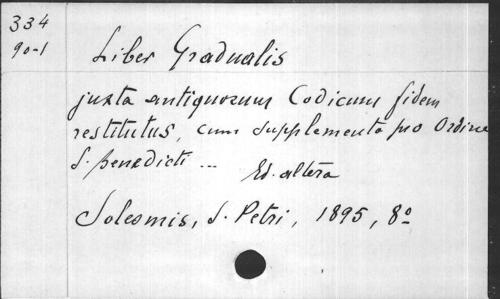 334
90-1
Liber Gradualis
juxta antiquorum Codicum fidem
restitutus, cum supplemento pro Ordine
S. Benedicti ...
Ed. altera
Solesmis, S. Petri, 1895, 8º